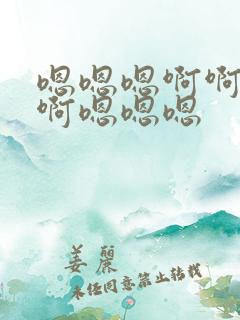 嗯嗯嗯啊啊
啊嗯嗯嗯
姜麗
未经同意禁止转载